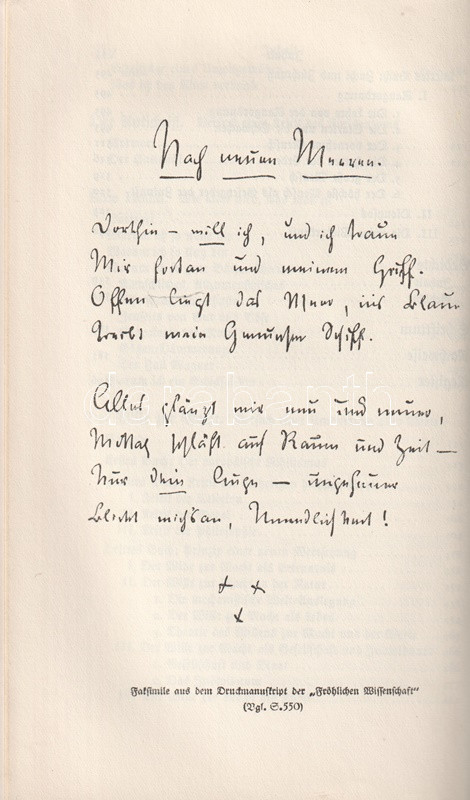 Nach neuen Meeren.
Dorthin – will ich, und ich traue
Mir fortan und meinem Griff.
Offen liegt das Meer, in's Blaue
Treibt mein Genueser Schiff.
Alles glänzt mir neu und neuer,
Mittag schläft auf Raum und Zeit –
Nur dein Auge – ungeheuer
Blickt mich's an, Unendlichkeit!
Faksimile aus dem Druckmanuskript der „Fröhlichen Wissenschaft“
(Vgl. S. 550)
darabanth